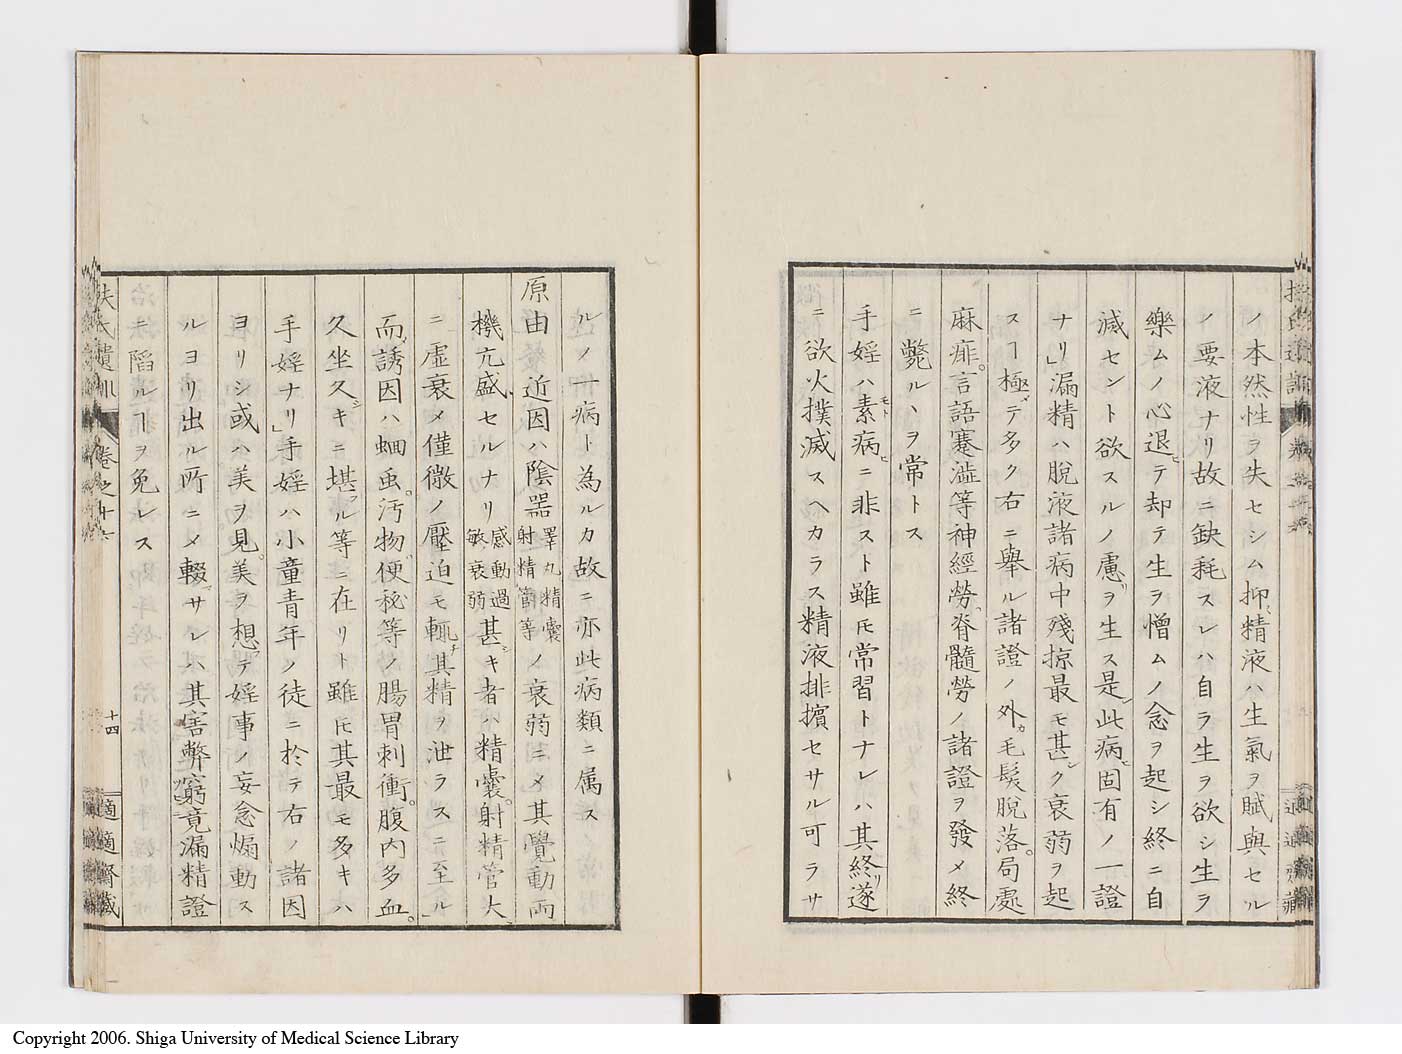 ノ本然性ヲ失セシム抑精液ハ生氣ヲ賦與セル
ノ要液ナリ故ニ缺耗スレハ自ラ生ヲ欲シ生ヲ
樂ムノ心退テ却テ生ヲ憎ムノ念ヲ起シ終ニ自
滅セント欲スルノ慮ヲ生ス是此病固有ノ一證
ナリ」漏精ハ脫液諸病中殘掠最モ甚シク衰弱ヲ起
スヿ極テ多ク右ニ舉ル諸證ノ外毛髮脫落局處
麻痱言語蹇澁等神經勞脊髓勞ノ諸證ヲ發メ終
ニ斃ルヽヲ常トス
手婬ハ素病ニ非スト雖モ常習トナレハ其終リ遂
ニ欲火撲滅スヘカラス精液排擯セサル可ラサ
ルノ一病ト為ルカ故ニ亦此病類ニ属ス
原由 近因ハ陰器睪丸精囊射精管等ノ衰弱ニメ其覺動両
機亢盛セルナリ感動過敏衰弱甚キ者ハ精囊射精管大
ニ虛衰メ僅微ノ壓迫モ輙其精ヲ泄ラスニ至ル」
而誘因ハ蛔虫汚物便秘等ノ腸胃刺衝腹内多血
久坐久キニ堪フル等ニ在リト雖モ其最モ多キハ
手婬ナリ」手婬ハ小童青年ノ徒ニ於テ右ノ諸因
ヨリシ或ハ美ヲ見美ヲ想テ婬事ノ妄念煽動ス
ルヨリ出ル所ニメ輟サレハ其害弊窮竟漏精證
ニ陷ルヿヲ免レス
扶氏遺訓 卷之十六
十四
適適齋藏
Copyright 2006. Shiga University of Medical Science Library